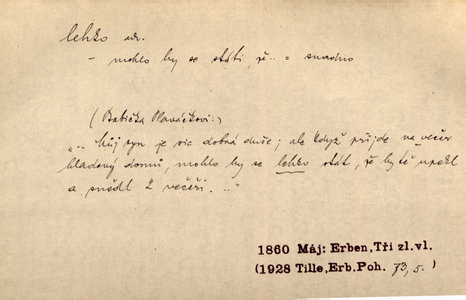 lehko adv.
– mohlo by se státi, že.. = snadno
(Babička Plaváčkovi:)
".. můj syn je sic dobrá duše; ale když přijde na večer
hladový domů, mohlo by se lehko stát, že by tě upekl
a snědl k večeři. .."
1860 Máj: Erben,Tři zl.vl.
(1928 Tille,Erb.Poh. 73,5.)